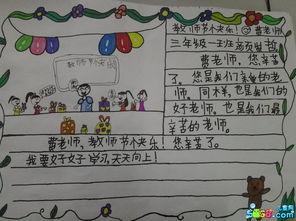 教师节快乐
教师节快乐！费老师
三年级一班
费老师，您辛苦
了，您是我们亲爱的老
师。同样，您也是我们的
好老师，也是我们最
辛苦的老师。
费老师，教师节快乐！您辛苦了。
我要好好学习，天天向上！